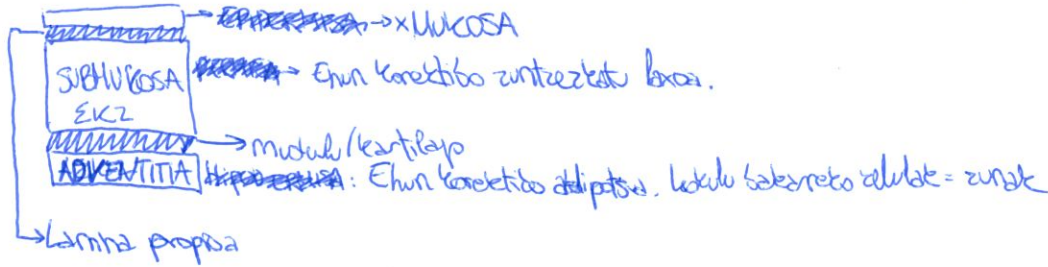 → x MUKOSA
SUBMUKOSA → Ehun konektibo zuntzezkatu laxoa.
EKZ
→ muskulu/kartilago
ADVENTITIA : Ehun konektibo adipotsua. Lokulu bakarreko zelulak = zunak
→ Lamina propioa